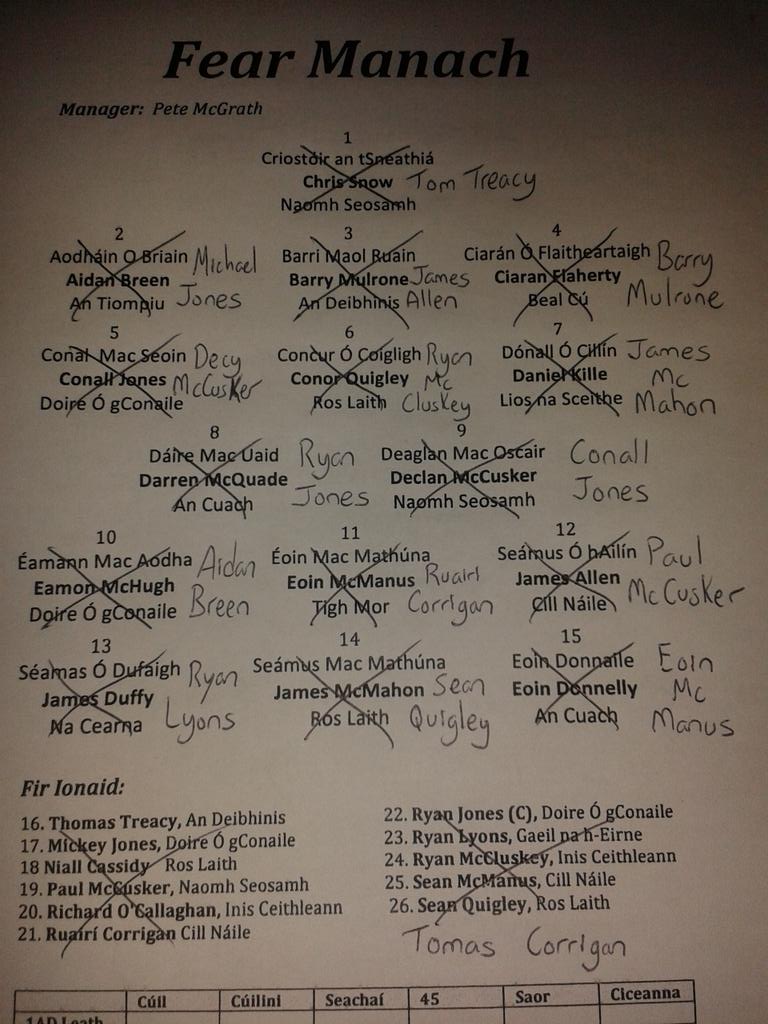 Fear Manach
Manager: Pete McGrath
1
Criostóir an tSneathiá
Chris Snow Tom Treacy
Naomh Seosamh
2 3 4
Aodháin O Briain Michael Barri Maol Ruain Ciarán Ó Flaitheartaigh Barry
Aidan Breen Barry Mulrone James Ciaran Flaherty
An Tiompiu Jones An Deibhinis Allen Beal Cú Mulrone
5 6 7
Conal Mac Seoin Decy Concur Ó Coigligh Ryan Dónall Ó Cillín James
Conall Jones McCusker Conor Quigley Mc Daniel Kille Mc
Doire Ó gConaile Ros Laith Cluskey Lios na Sceithe Mahon
8 9
Dáire Mac Uaid Ryan Deaglan Mac Oscair Conall
Darren McQuade Declan McCusker
An Cuach Jones Naomh Seosamh Jones
10 11 12
Éamann Mac Aodha Aidan Éoin Mac Mathúna Seámus Ó hAilín Paul
Eamon McHugh Eoin McManus Ruairi James Allen McCusker
Doire Ó gConaile Breen Tigh Mor Corrigan Cill Náile
13 14 15
Séamas Ó Dufaigh Ryan Seámus Mac Mathúna Eoin Donnaile Eoin
James Duffy James McMahon Sean Eoin Donnelly Mc
Na Cearna Lyons Ros Laith Quigley An Cuach Manus
Fir Ionaid:
16. Thomas Treacy, An Deibhinis
17. Mickey Jones, Doire Ó gConaile
18 Niall Cassidy Ros Laith
19. Paul McCusker, Naomh Seosamh
20. Richard O'Callaghan, Inis Ceithleann
21. Ruairí Corrigan Cill Náile
22. Ryan Jones (C), Doire Ó gConaile
23. Ryan Lyons, Gaeil na h-Eirne
24. Ryan McCluskey, Inis Ceithleann
25. Sean McManus, Cill Náile
26. Sean Quigley, Ros Laith
Tomas Corrigan
Cúil Cúilini Seachaí 45 Saor Ciceanna
1AD Leath